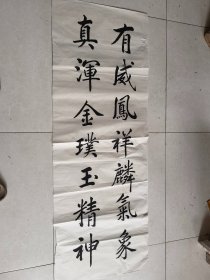 有威鳳祥麟氣象
真渾金璞玉精神